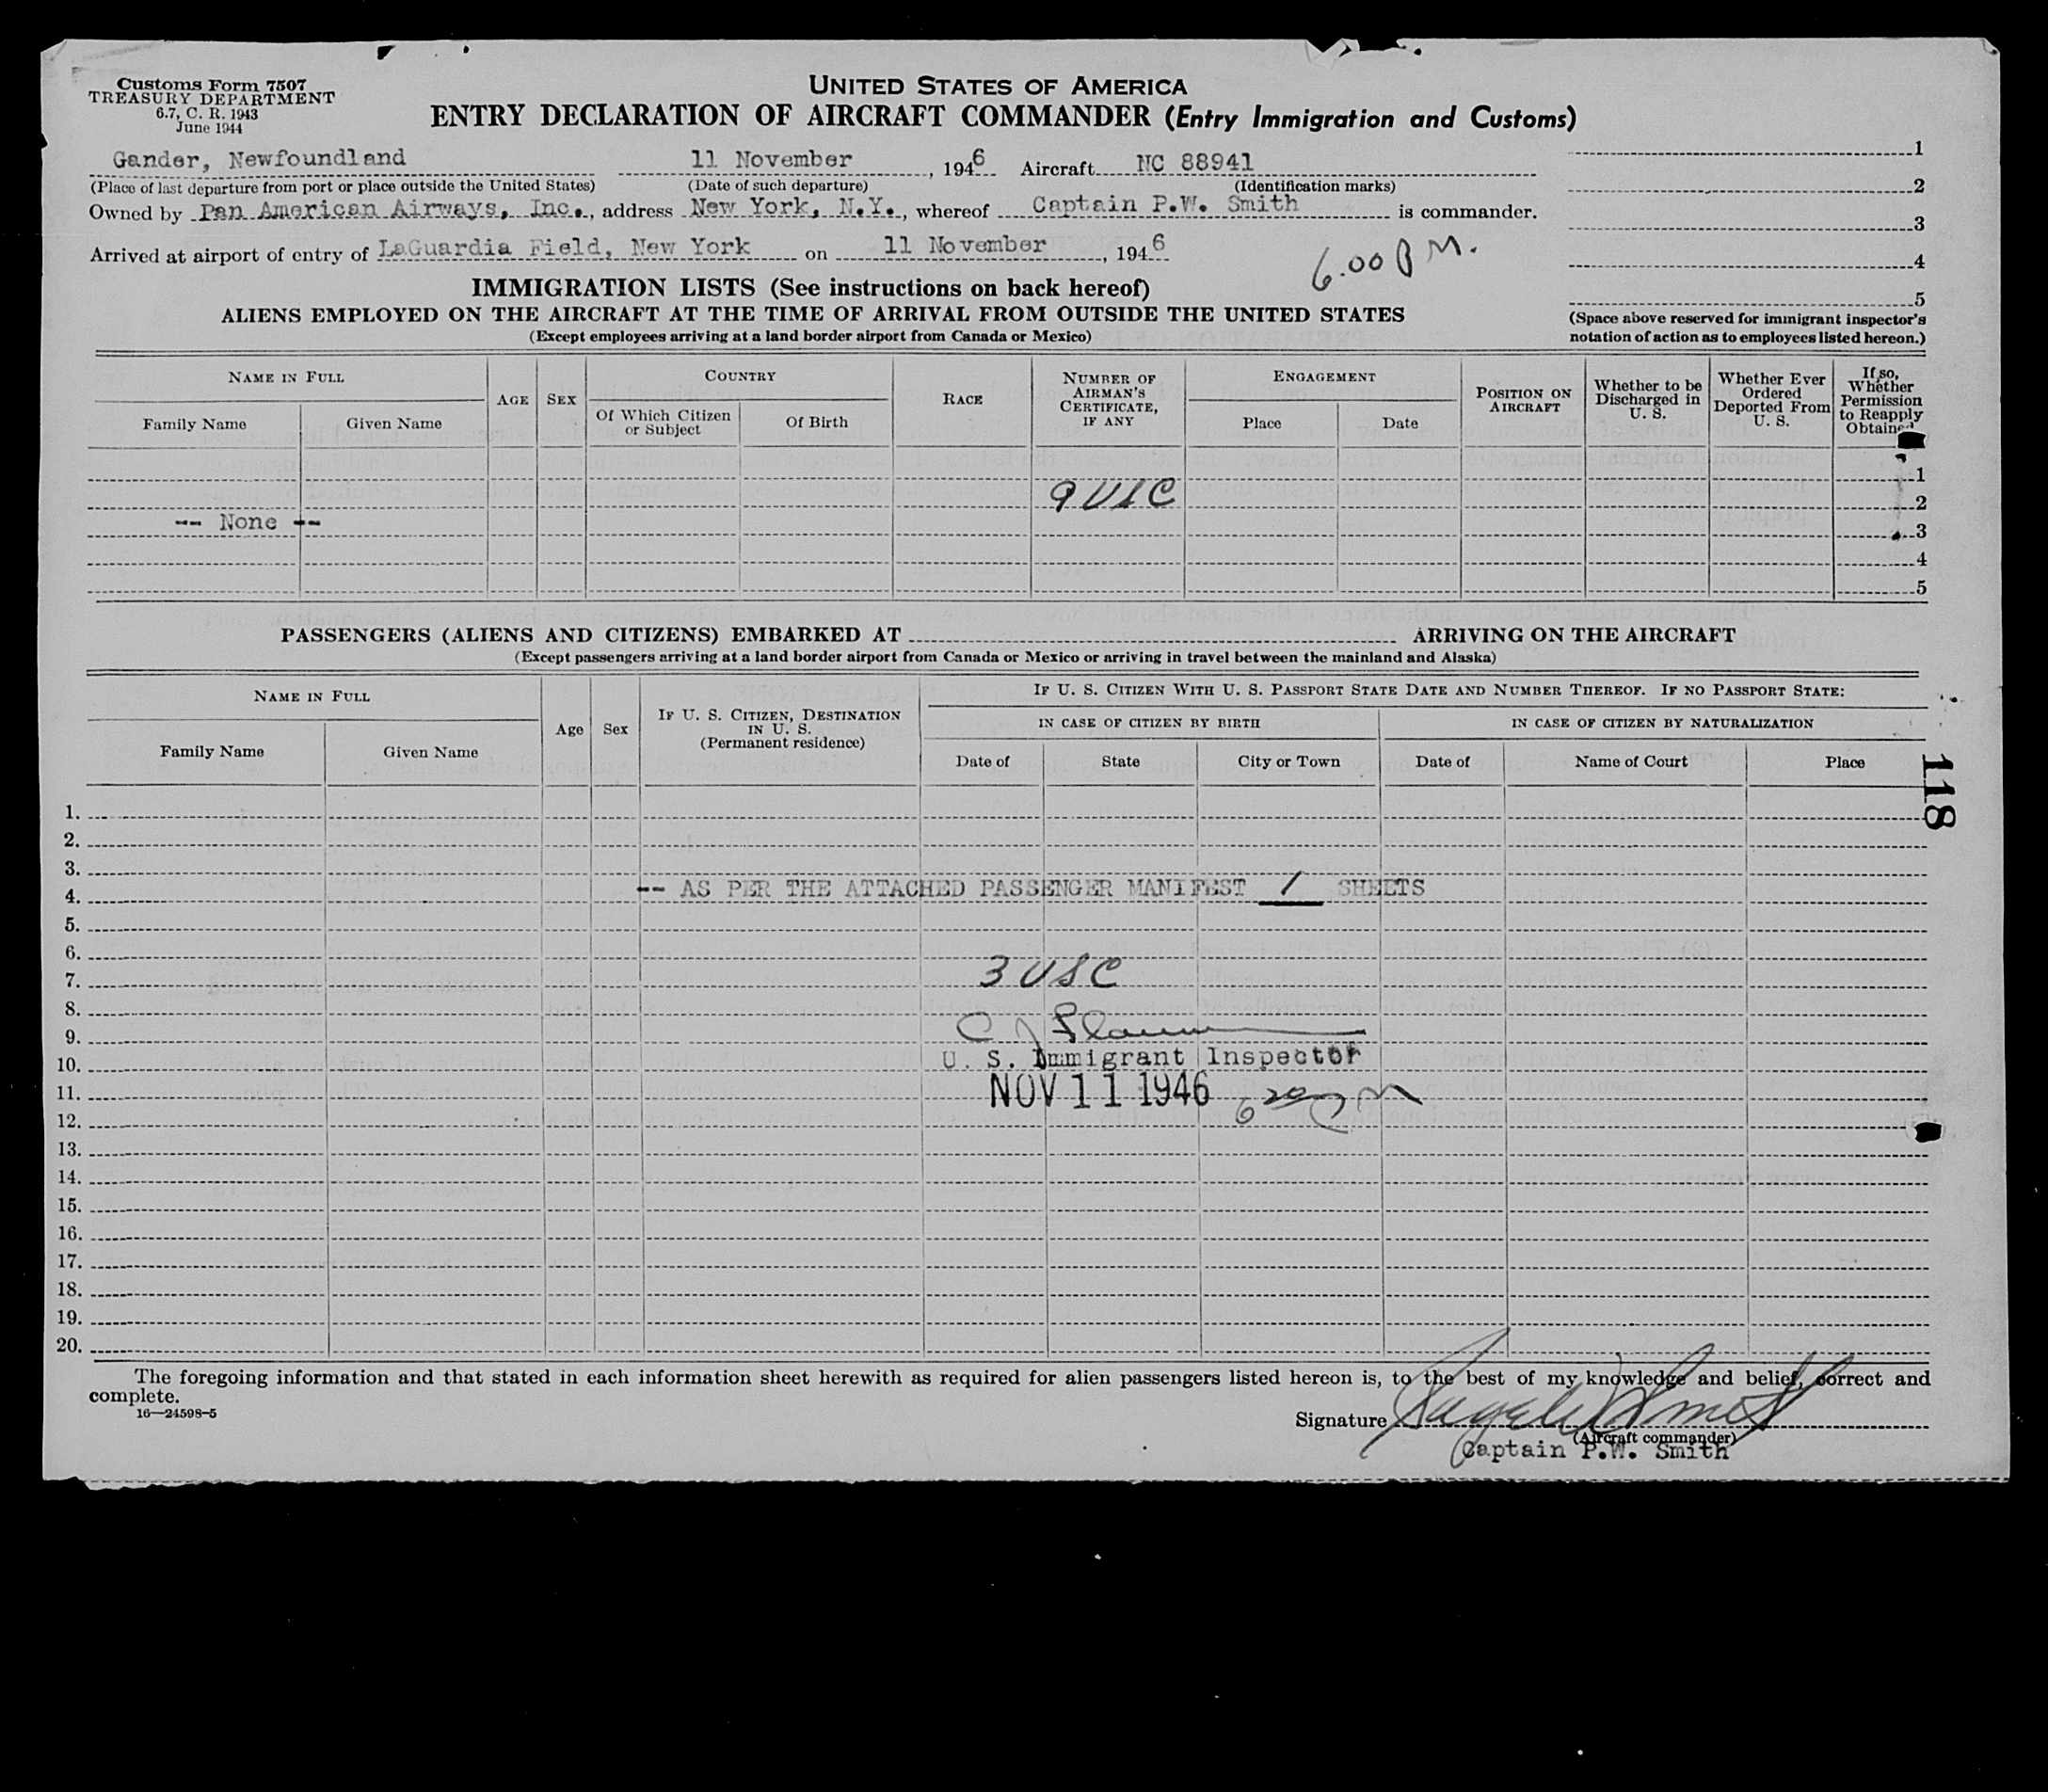 Customs Form 7507
TREASURY DEPARTMENT
6.7, C. R. 1943
June 1944
UNITED STATES OF AMERICA
ENTRY DECLARATION OF AIRCRAFT COMMANDER (Entry Immigration and Customs)
Gander, Newfoundland 11 November, 1946 Aircraft NC 88941
(Place of last departure from port or place outside the United States) (Date of such departure) (Identification marks)
Owned by Pan American Airways, Inc., address New York, N.Y., whereof Captain P.W. Smith is commander.
Arrived at airport of entry of LaGuardia Field, New York on 11 November, 1946
6.00 P M.
1
2
3
4
5
(Space above reserved for immigrant inspector's
notation of action as to employees listed hereon.)
IMMIGRATION LISTS (See instructions on back hereof)
ALIENS EMPLOYED ON THE AIRCRAFT AT THE TIME OF ARRIVAL FROM OUTSIDE THE UNITED STATES
(Except employees arriving at a land border airport from Canada or Mexico)
NAME IN FULL
Family Name Given Name
AGE
SEX
COUNTRY
Of Which Citizen
or Subject
Of Birth
RACE
NUMBER OF
AIRMAN'S
CERTIFICATE,
IF ANY
ENGAGEMENT
Place Date
POSITION ON
AIRCRAFT
Whether to be
Discharged in
U. S.
Whether Ever
Ordered
Deported From
U. S.
If so,
Whether
Permission
to Reapply
Obtained
1
9 USC 2
-- None -- 3
4
5
PASSENGERS (ALIENS AND CITIZENS) EMBARKED AT ARRIVING ON THE AIRCRAFT
(Except passengers arriving at a land border airport from Canada or Mexico or arriving in travel between the mainland and Alaska)
NAME IN FULL
Family Name Given Name
Age
Sex
IF U. S. CITIZEN, DESTINATION
IN U. S.
(Permanent residence)
IF U. S. CITIZEN WITH U. S. PASSPORT STATE DATE AND NUMBER THEREOF. IF NO PASSPORT STATE:
IN CASE OF CITIZEN BY BIRTH IN CASE OF CITIZEN BY NATURALIZATION
Date of State City or Town Date of Name of Court Place
118
1.
2.
3.
-- AS PER THE ATTACHED PASSENGER MANIFEST 1 SHEETS
4.
5.
6.
7. 3 USC
8.
9. C J
10. U. S. Immigrant Inspector
11. NOV 11 1946 6 20 P M
12.
13.
14.
15.
16.
17.
18.
19.
20.
The foregoing information and that stated in each information sheet herewith as required for alien passengers listed hereon is, to the best of my knowledge and belief, correct and
complete.
16—24598-5
Signature
(Aircraft commander)
Captain P.W. Smith